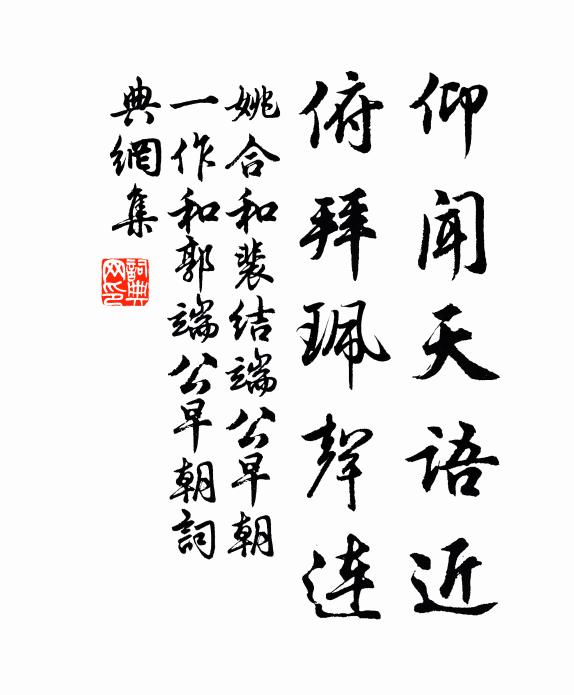 仰聞天語近
俯拜珮聲連
姚合和裴结端公早朝
一作和郭端公早朝詞
典網集
詞典網印